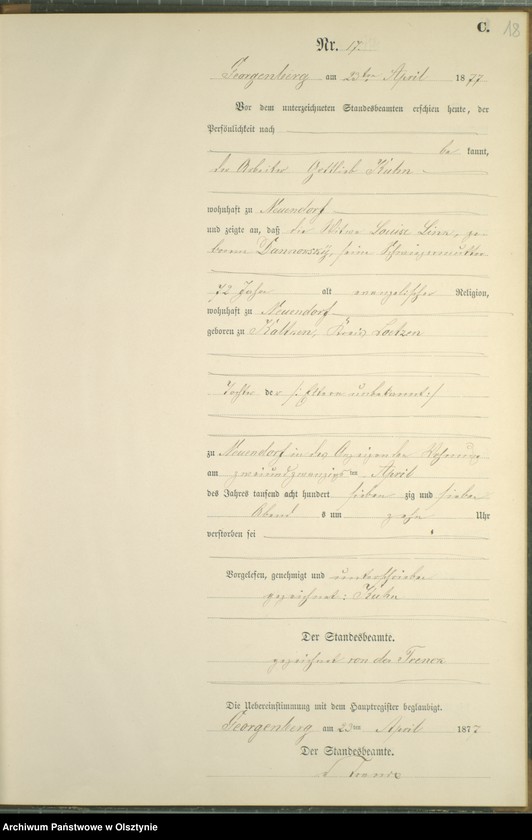 C. 18
Nr. 17.
Georgenburg am 23ten April 1877
Vor dem unterzeichneten Standesbeamten erschien heute, der
Persönlichkeit nach
be kannt,
der Arbeiter Gottlieb
wohnhaft zu Neuendorf
und zeigte an, daß die Witwe Louise Linx, ge-
borene Dannowsky, seine Schwiegermutter
72 Jahre alt evangelischer Religion,
wohnhaft zu Neuendorf
geboren zu Kreis Loetzen
Tochter der /: Eltern unbekannt :/
zu Neuendorf in des Anzeigenden Wohnung
am zweiundzwanzigsten April
des Jahres tausend acht hundert sieben zig und sieben
Abend s um zehn Uhr
verstorben sei
Vorgelesen, genehmigt und unterschrieben
gezeichnet:
Der Standesbeamte.
gezeichnet von der Trenck
Die Uebereinstimmung mit dem Hauptregister beglaubigt.
Georgenburg am 23ten April 1877
Der Standesbeamte.
v Trenck
Archiwum Państwowe w Olsztynie